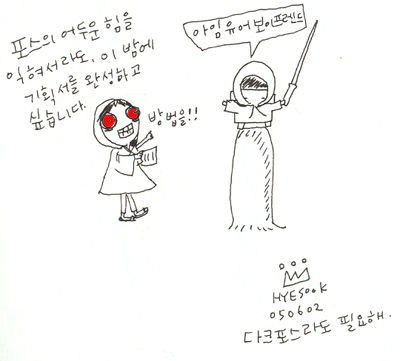 포스의 어두운 힘을
익혀서라도, 이 밤에
기획서를 완성하고
싶습니다.
아임 유어 보이프렌드
방법을!!
HYESOOK
050602
다크포스라도 필요해.